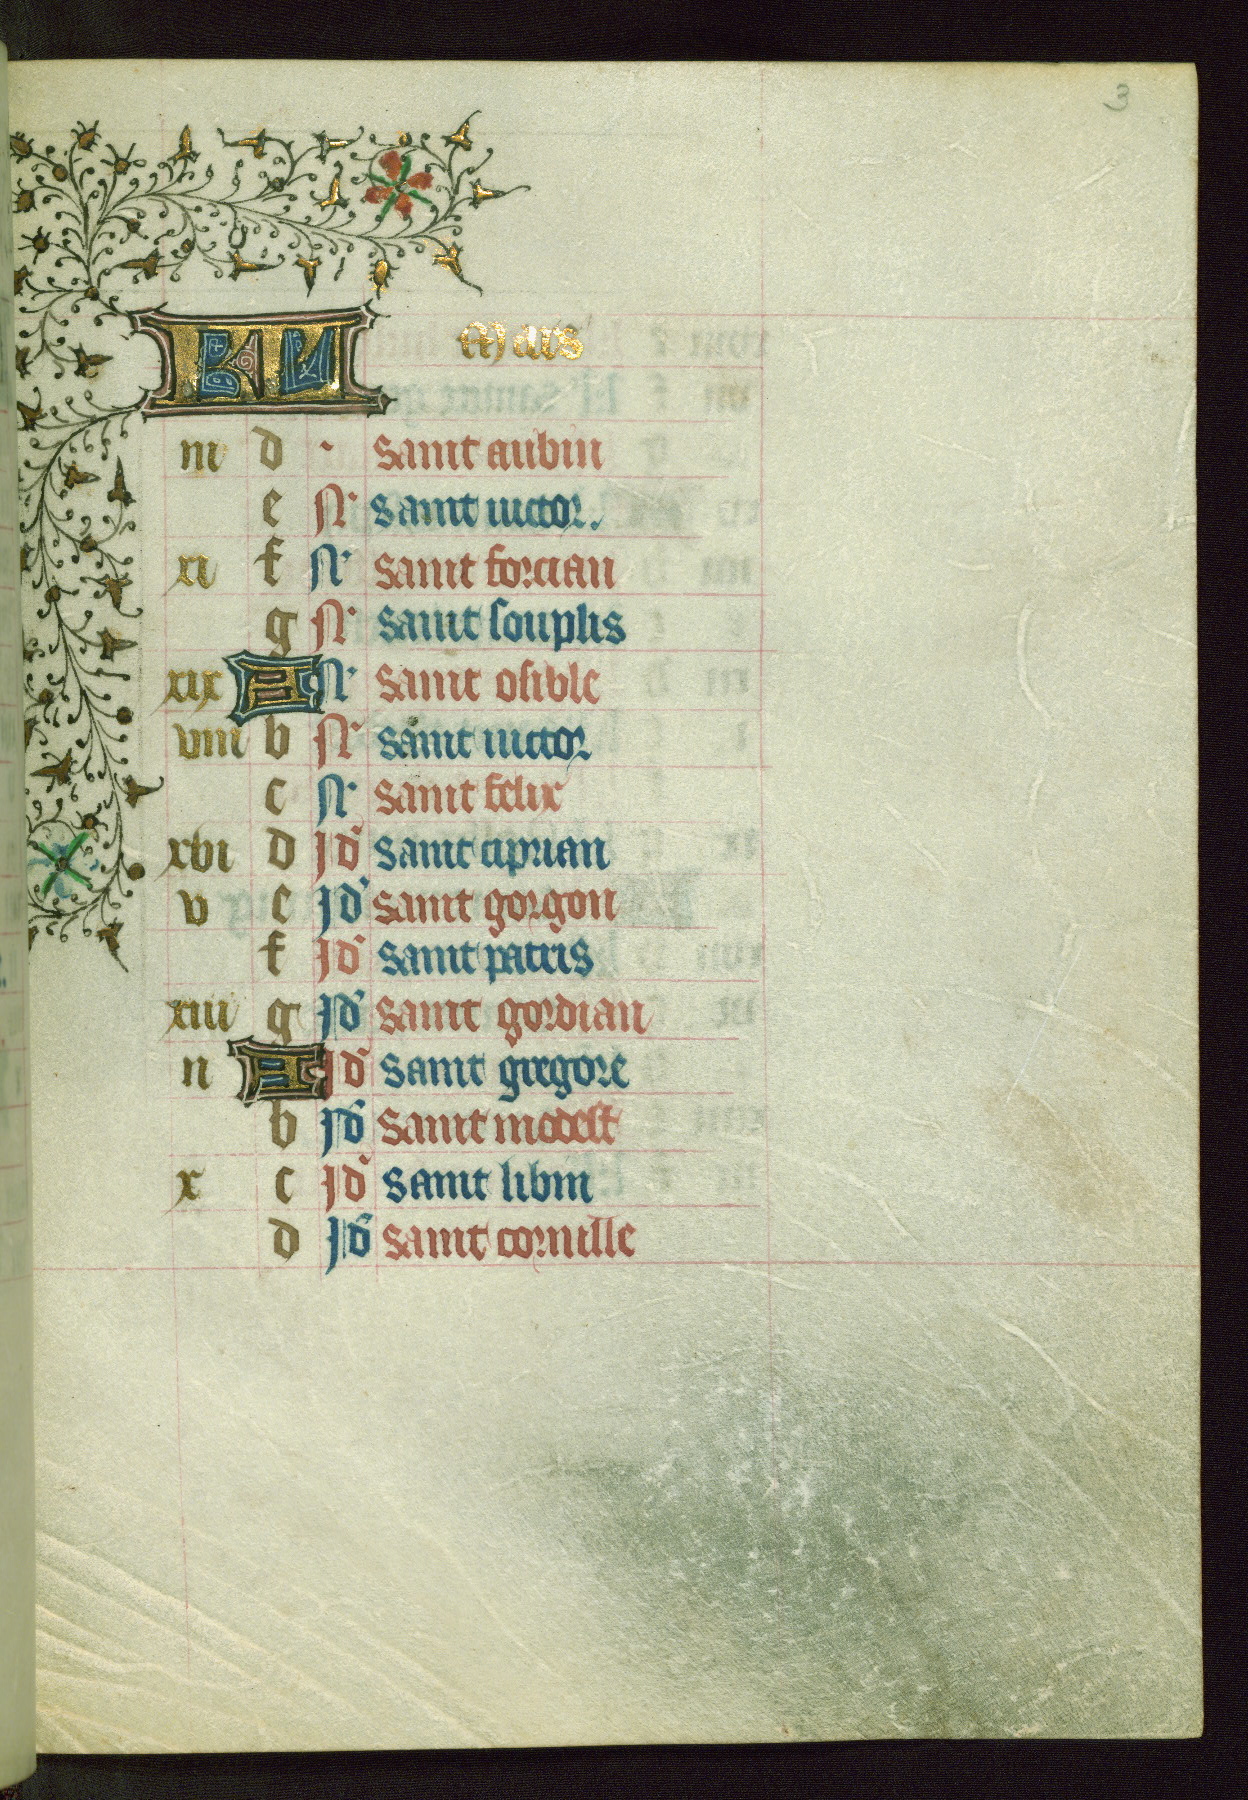 3
KL Mars
iii d · saint aubin
e N· saint uictor.
xi f N· saint forcian
g N· saint souplis
xix A N· saint osible
viii b N· saint uictor
c N· saint felix
xvi d Jd' saint ciprian
v e Jd' saint gorgon
f Jd' saint patris
xiii g Jd' saint gordian
ii A Jd' saint gregore
b Jd' saint modest
x c Jd' saint libin
d Jd' saint cornille